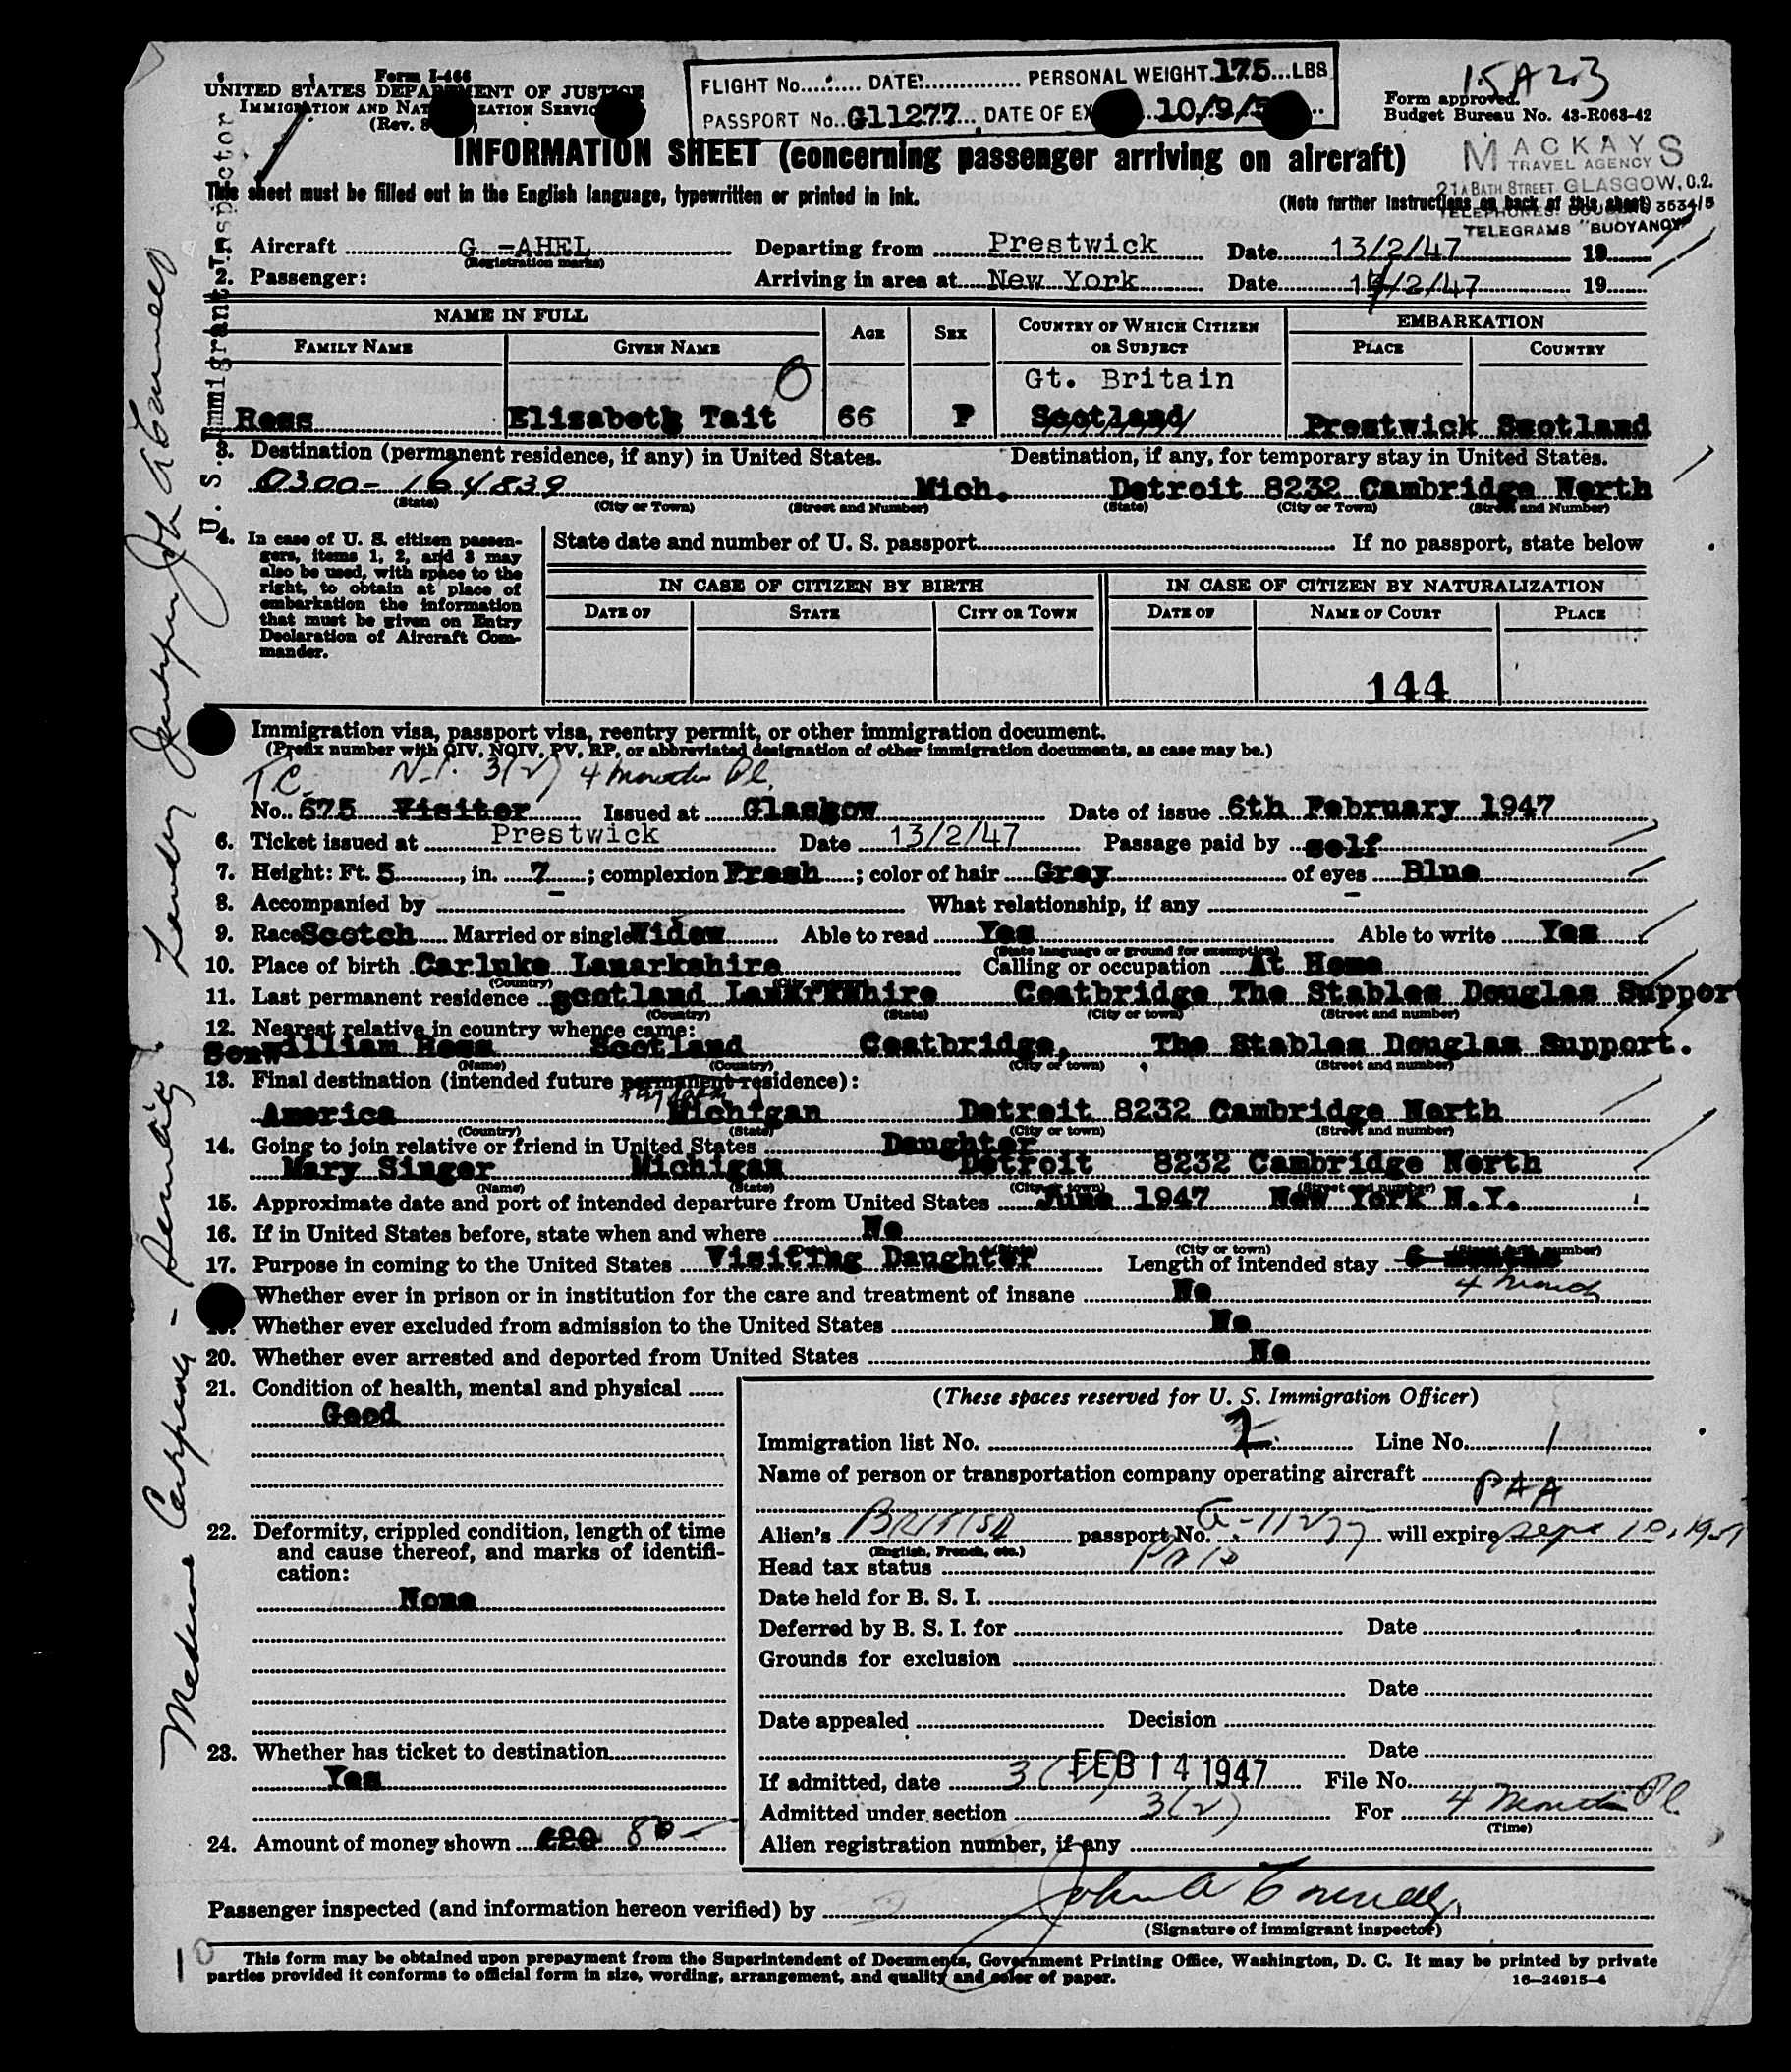 Form I-466
UNITED STATES DEPARTMENT OF JUSTICE
IMMIGRATION AND NATURALIZATION SERVICE
(Rev.
FLIGHT No. DATE PERSONAL WEIGHT 175 LBS
PASSPORT No. G11277 DATE OF EX 10/9/5
15A23
Form approved.
Budget Bureau No. 43-R063-42
MACKAYS
TRAVEL AGENCY
21A BATH STREET. GLASGOW, C.2.
TELEPHONES: DOUGLAS 3534/5
TELEGRAMS "BUOYANCY"
INFORMATION SHEET (concerning passenger arriving on aircraft)
This sheet must be filled out in the English language, typewritten or printed in ink.
(Note further instructions on back of this sheet)
U. S. Immigrant Inspector
1. Aircraft G -AHEL Departing from Prestwick Date 13/2/47 19
(Registration marks)
2. Passenger: Arriving in area at New York Date 14/2/47 19
NAME IN FULL AGE SEX COUNTRY OF WHICH CITIZEN OR SUBJECT EMBARKATION
FAMILY NAME GIVEN NAME PLACE COUNTRY
Gt. Britain
Ross Elizabeth Tait 66 F Scotland Prestwick Scotland
3. Destination (permanent residence, if any) in United States. Destination, if any, for temporary stay in United States.
0300-164839 Mich. Detroit 8232 Cambridge North
(State) (City or Town) (Street and Number) (State) (City or Town) (Street and Number)
4. In case of U. S. citizen passengers, items 1, 2, and 3 may
also be used, with space to the
right, to obtain at place of
embarkation the information
that must be given on Entry
Declaration of Aircraft Commander.
State date and number of U. S. passport If no passport, state below
IN CASE OF CITIZEN BY BIRTH IN CASE OF CITIZEN BY NATURALIZATION
DATE OF STATE CITY OR TOWN DATE OF NAME OF COURT PLACE
144
Immigration visa, passport visa, reentry permit, or other immigration document.
(Prefix number with QIV, NQIV, PV, RP, or abbreviated designation of other immigration documents, as case may be.)
T.C. 3(2) 4 months
No. 675 Visitor Issued at Glasgow Date of issue 6th February 1947
6. Ticket issued at Prestwick Date 13/2/47 Passage paid by self
7. Height: Ft. 5, in. 7; complexion Fresh; color of hair Grey of eyes Blue
8. Accompanied by - What relationship, if any -
9. Race Scotch Married or single Widow Able to read Yes Able to write Yes
(State language or ground for exemption)
10. Place of birth Carluke Lanarkshire Calling or occupation At Home
(Country)
11. Last permanent residence Scotland Lanarkshire Coatbridge The Stables Douglas Suppor
(Country) (State) (City or town) (Street and number)
12. Nearest relative in country whence came:
Son William Ross Scotland Coatbridge, The Stables Douglas Support.
(Name) (Country) (City or town) (Street and number)
13. Final destination (intended future permanent residence):
America Michigan Detroit 8232 Cambridge North
(Country) (State) (City or town) (Street and number)
14. Going to join relative or friend in United States Daughter
Mary Singer Michigan Detroit 8232 Cambridge North
(Name) (State) (City or town) (Street and number)
15. Approximate date and port of intended departure from United States June 1947 New York N.Y.
16. If in United States before, state when and where No
(City or town)
17. Purpose in coming to the United States Visiting Daughter Length of intended stay 6 months
4 months
Whether ever in prison or in institution for the care and treatment of insane No
Whether ever excluded from admission to the United States No
20. Whether ever arrested and deported from United States No
21. Condition of health, mental and physical
Good
22. Deformity, crippled condition, length of time
and cause thereof, and marks of identification:
None
23. Whether has ticket to destination
Yes
24. Amount of money shown £20 80 -
(These spaces reserved for U. S. Immigration Officer)
Immigration list No. 2 Line No. 1
Name of person or transportation company operating aircraft
PAA
Alien's BRITISH passport No. G-11277 will expire Sept 10, 1951
(English, French, etc.)
Head tax status PAID
Date held for B. S. I.
Deferred by B. S. I. for Date
Grounds for exclusion
Date
Date appealed Decision
Date
If admitted, date FEB 14 1947 File No.
Admitted under section 3(2) For 4 months
(Time)
Alien registration number, if any
Passenger inspected (and information hereon verified) by
(Signature of immigrant inspector)
This form may be obtained upon prepayment from the Superintendent of Documents, Government Printing Office, Washington, D. C. It may be printed by private
parties provided it conforms to official form in size, wording, arrangement, and quality and color of paper.
16—24915-4